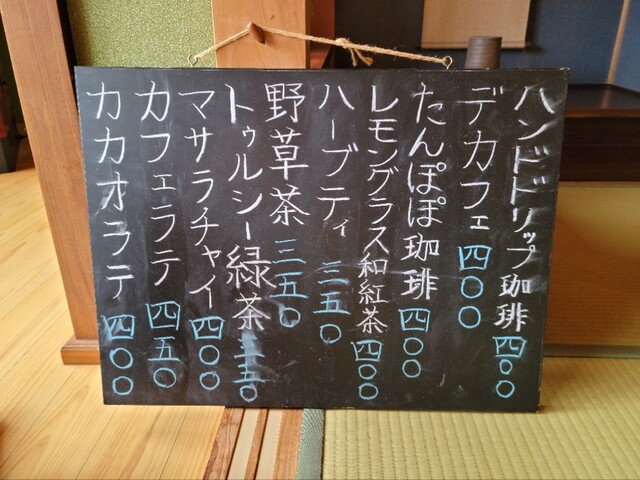 ハンドドリップ珈琲 四〇〇
デカフェ 四〇〇
たんぽぽ珈琲 四〇〇
レモングラス和紅茶 四〇〇
ハーブティ 三五〇
野草茶 三五〇
トゥルシー緑茶 三五〇
マサラチャイ 四〇〇
カフェラテ 四五〇
カカオラテ 四〇〇